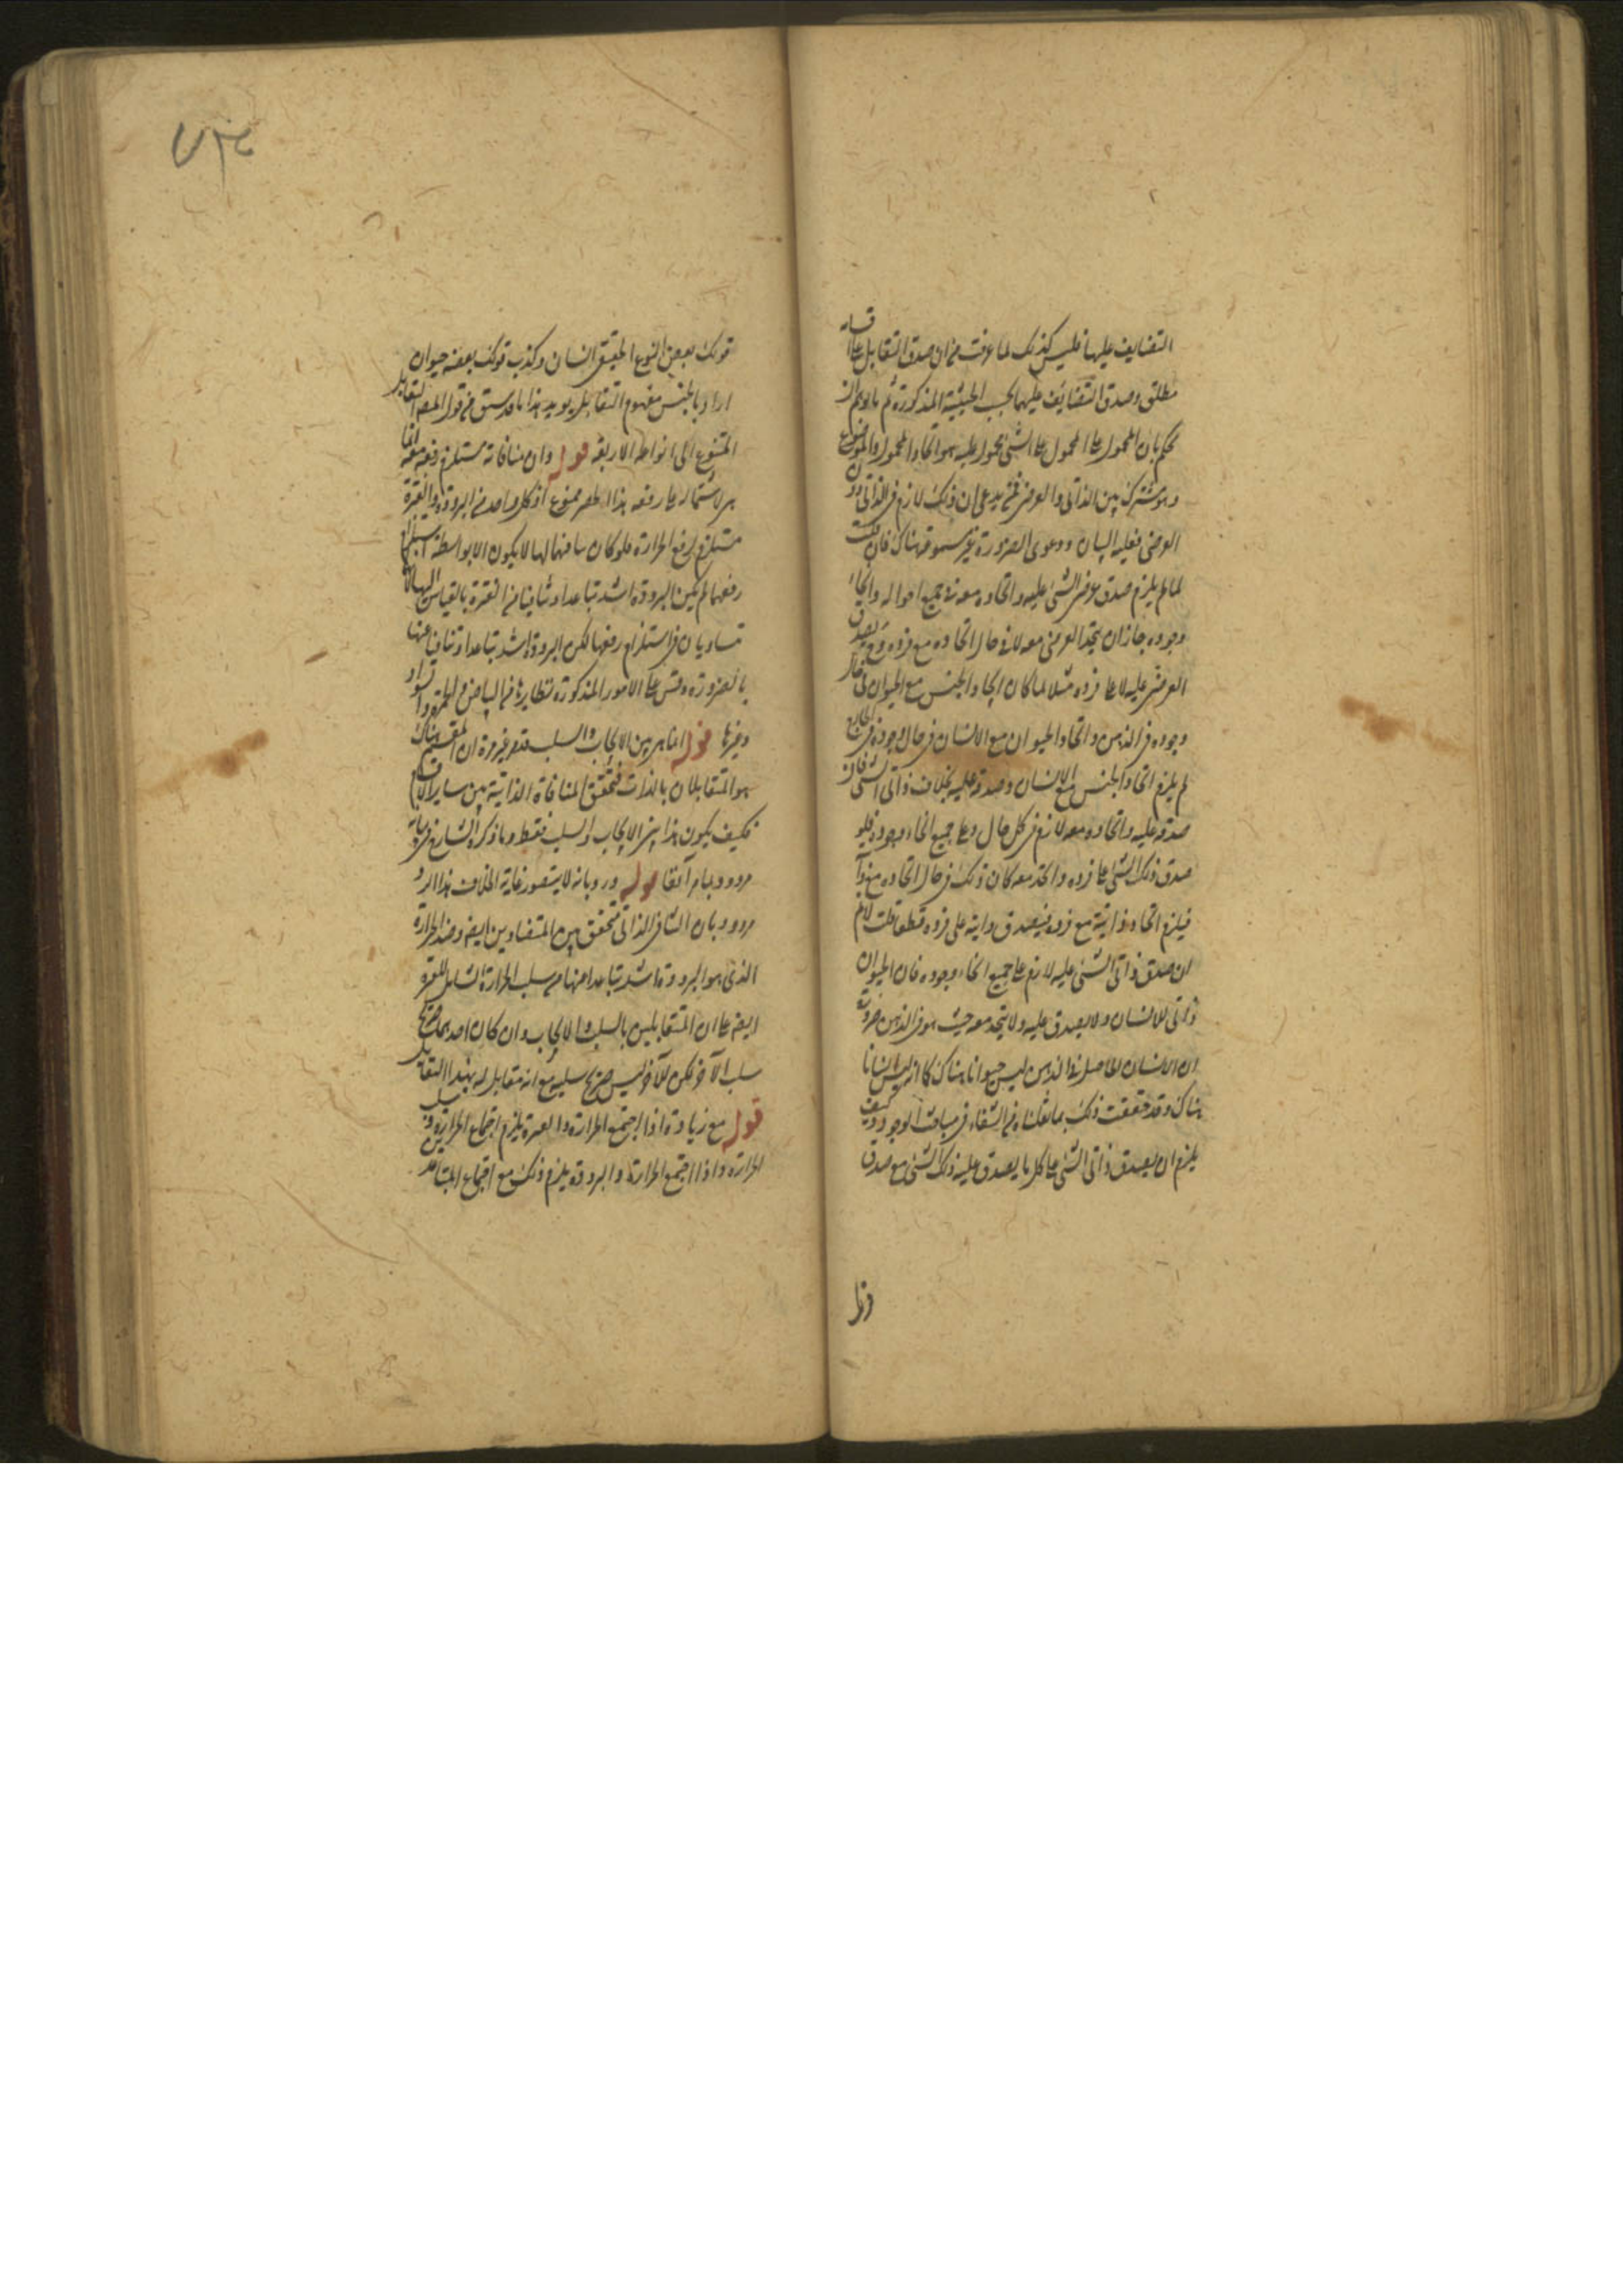 التضايف عليها فليس كذلك لما عرفت من ان صدق التقابل على اقسامه
مطلق وصدق التضايف عليهما بحسب الحيثية المذكورة ثم ما لم
يحكم بان المحمول على المحمول على الشئ محمول عليه هو اتحاد المحمول والموضوع
وهو مشترك بين الذاتى والعرضى فمن يدعى ان ذلك لازم فى الذاتى دون
العرضى فعليه البيان ودعوى الضرورة غير مسموعة هناك فان قلت
لما لم يلزم صدق عرضى الشئ عليه واتحاده معه فى جميع احواله وانحاء
وجوده جاز ان يتحد العرضى معه لا فى حال اتحاده مع فرده فح يصدق
العرضى عليه لا على فرده مثلا لما كان اتحاد الجنس مع الحيوان فى حال
وجوده فى الذهن واتحاد الحيوان مع الانسان فى حال وجوده فى الخارج
لم يلزم اتحاد الجنس مع الانسان وصدقه عليه بخلاف ذاتى الشئ فان
صدقه عليه واتحاده معه لازم فى كل حال وعلى جميع انحاء وجوده فلو
صدق ذلك الشئ على فرده واتحد معه كان ذلك فى حال اتحاده مع ذاتيه
فيلزم اتحاد ذاتيه مع فرده فيصدق ذاتيه على فرده قطعا قلت لا نم
ان صدق ذاتى الشئ عليه لازم على جميع انحاء وجوده فان الحيوان
ذاتى للانسان ولا يصدق عليه ولا يتحد معه حيث هو فى الذهن ضرورة
ان الانسان الحاصل فى الذهن ليس حيوانا هناك كما انه ليس انسانا
هناك وقد حققت ذلك بما نقلناه من الشفاء فى مباحث الوجود وكيف
يلزم ان يصدق ذاتى الشئ على كل ما يصدق عليه ذلك الشئ مع صدق
قولك بعض النوع الحقيقى انسان وكذب قولك بعضه حيوان
اراد بالجنس مفهوم التقابل يويد هذا ما قد سبق من قول المصه التقابل
المتنوع الى انواعه الاربعة قوله وان منافاته مستلزم رفعه معه انما
هى لاشتماله على رفعه هذا الحصر ممنوع اذ كل واحد من البرودة والفترة
مستلزم لرفع الحرارة فلو كان منافاتهما لها لا يكون الا بواسطة استلزام
رفعها لم يكن البرودة اشد تباعدا وتنافيا من الفترة بالقياس اليها لانهما
متساويان فى استلزام رفعها لكن البرودة اشد تباعدا وتنافيا عنها
بالضرورة وقس على الامور المذكورة نظايرها من البياض والحمرة والسواد
وغيرها قوله انما هى بين الايجاب والسلب فقط غير ان المقسم هناك
هو المتقابلان بالذات فتحقق المنافاة الذاتية بين ساير الاقسام
فكيف يكون هذا بين الايجاب والسلب فقط وما ذكره الشارح فى بيانه
مردود بما مر آنفا قوله ورد بانه لا يتصور غاية الخلاف هذا الرد
مردود بان التنافى الذاتى متحقق بين المتضادين ايضه وضد الحرارة
الذى هو البرودة اشد تباعدا منها من سلب الحرارة الشامل للفترة
ايضه على ان المتقابلين بالسلب والايجاب وان كان احدهما صريح
سلب الآخر لكن الآخر ليس صريح سلبه مع انه مقابل له بهذا التقابل
قوله مع زيادة اذا اجتمع الحرارة والفترة يلزم اجتماع الحرارة وسلب
الحرارة واذا اجتمع الحرارة والبرودة يلزم ذلك مع اجتماع المتباعدين